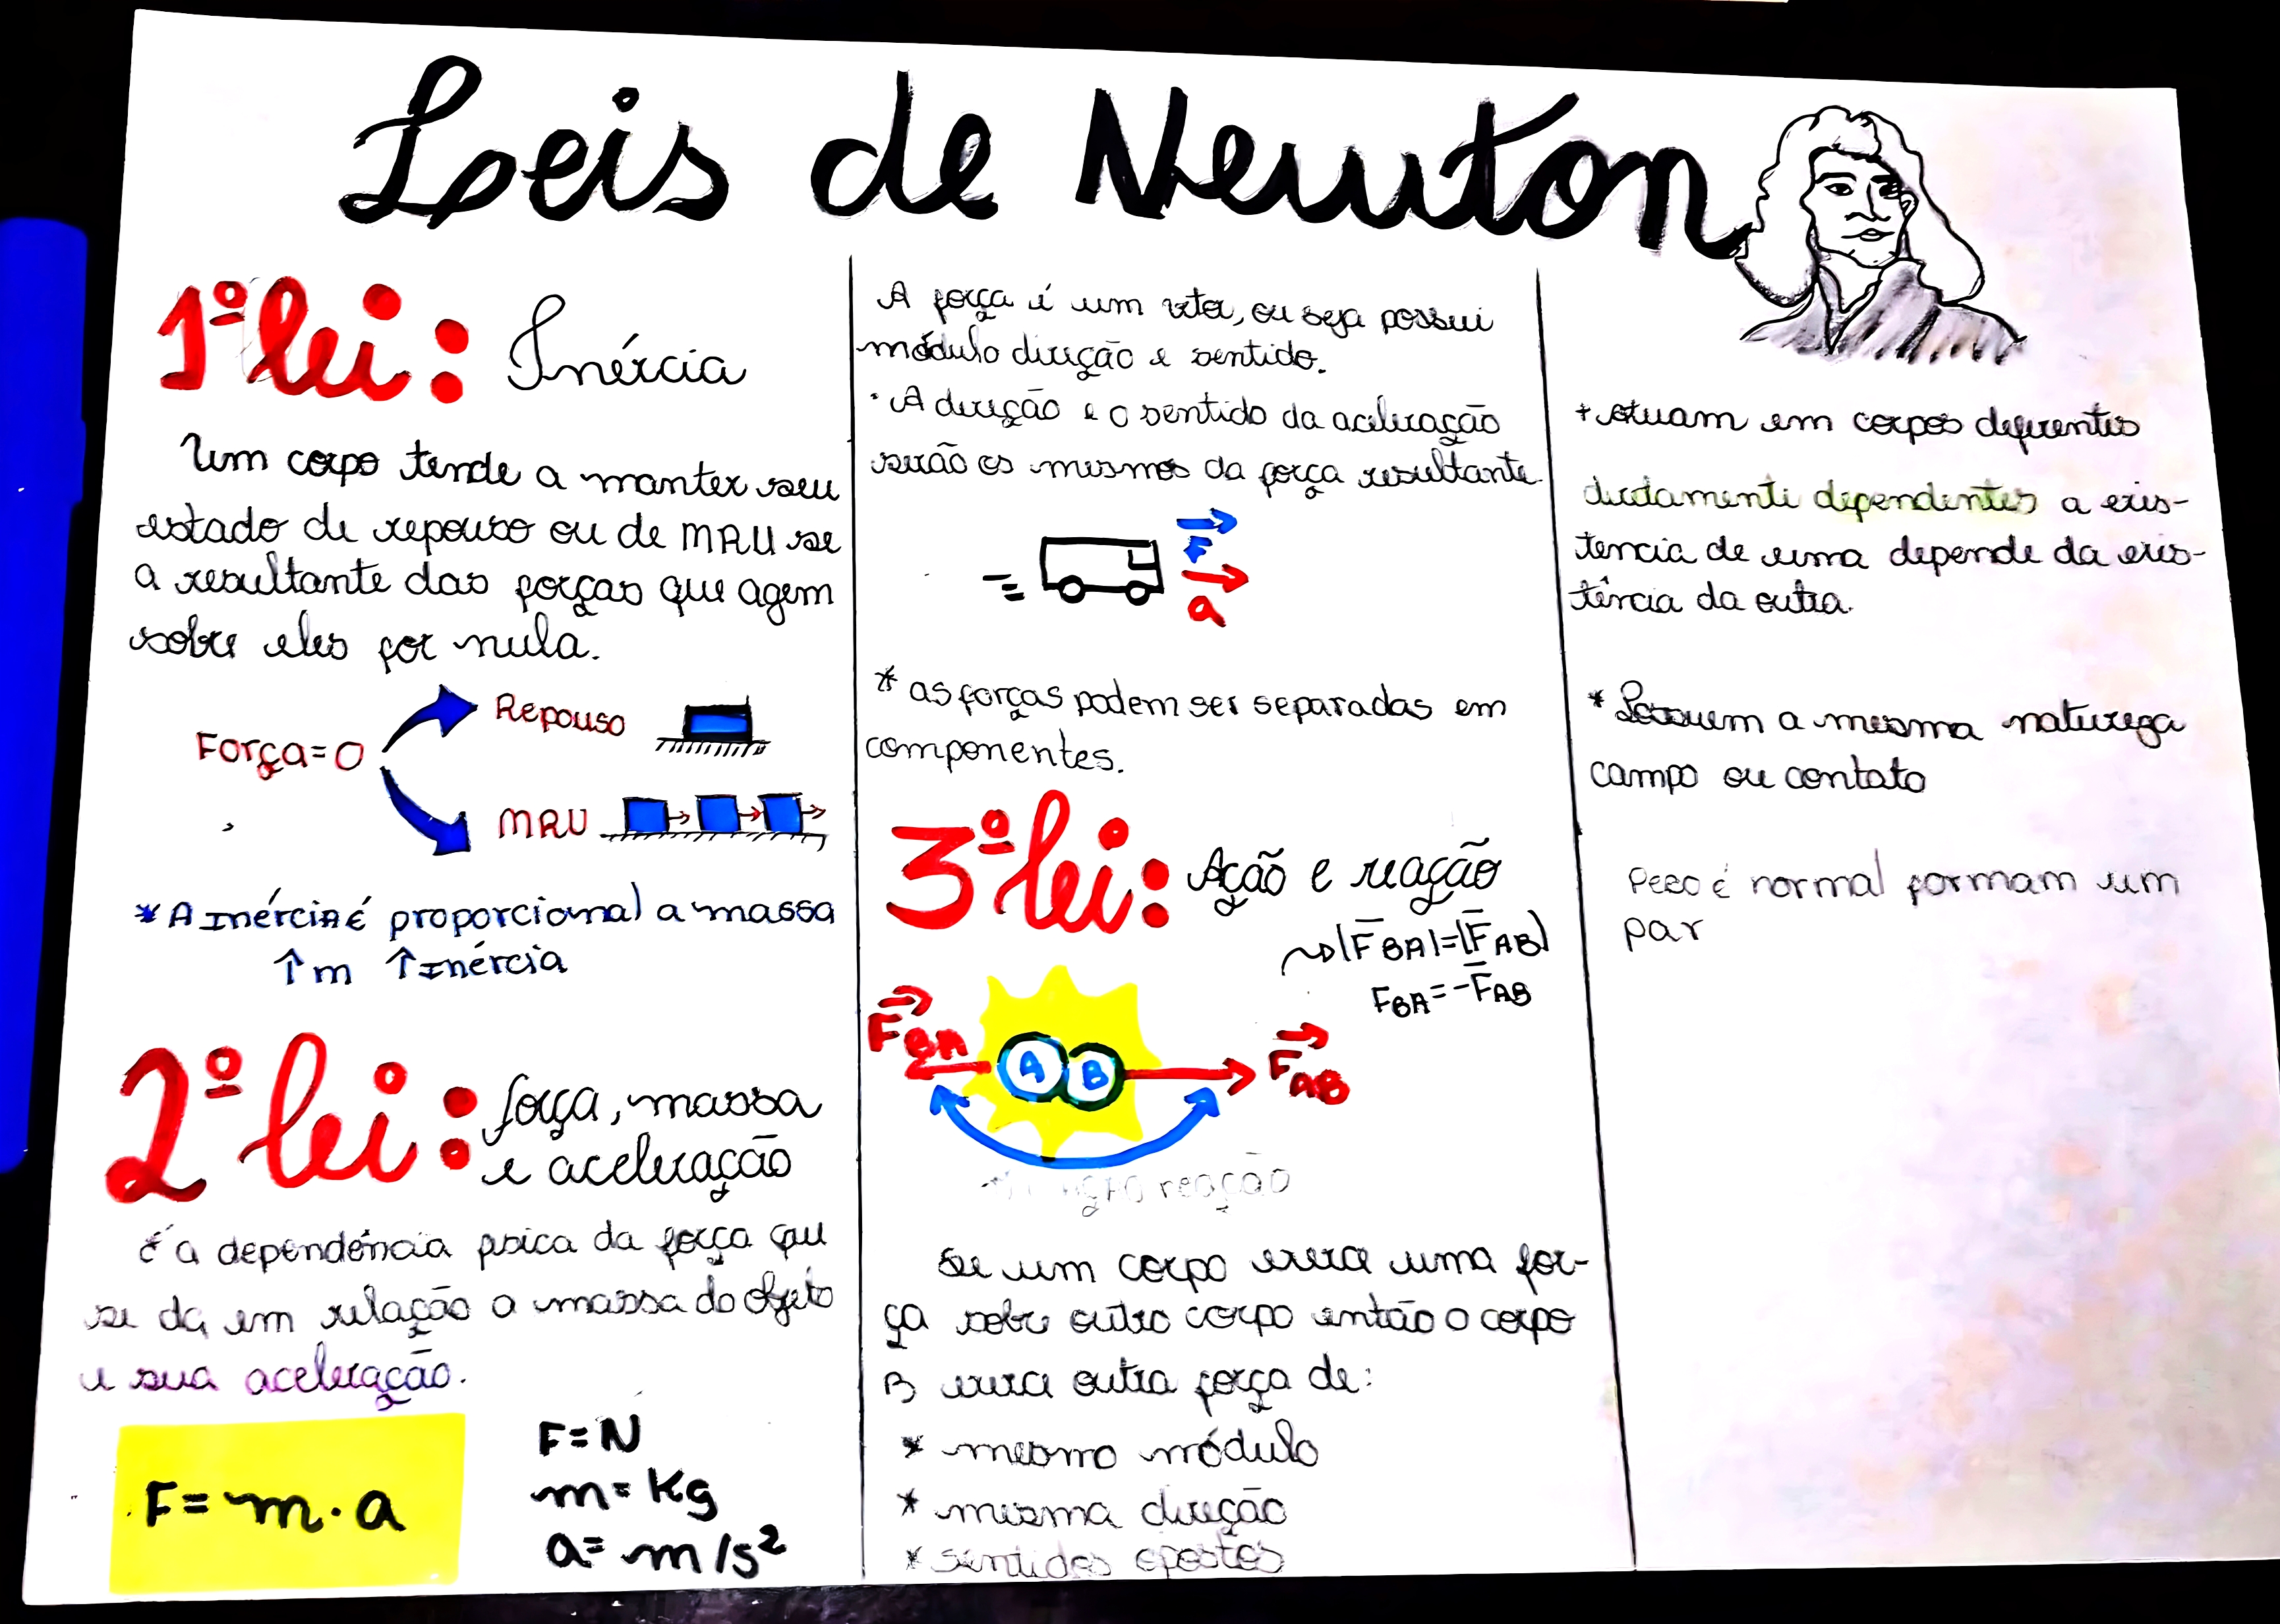 Leis de Newton
1º lei: Inércia
Um corpo tende a manter seu
estado de repouso ou de MRU se
a resultante das forças que agem
sobre eles for nula.
Força=0
Repouso
MRU
* A Inércia é proporcional a massa
↑m ↑Inércia
2º lei: força, massa
e aceleração
é a dependência física da força que
se da em relação a massa do objeto
e sua aceleração.
F= m·a
F=N
m= Kg
a= m/s²
A força é um vetor, ou seja possui
módulo direção e sentido.
· A direção e o sentido da aceleração
serão os mesmos da força resultante.
F
a
* as forças podem ser separadas em
componentes.
3º lei: Ação e reação
|F BA|=|F AB|
FBA=-FAB
FBA
A B
FAB
reação
Se um corpo exerce uma for-
ça sobre outro corpo então o corpo
B exerce outra força de:
* mesmo módulo
* mesma direção
* sentidos opostos
+ atuam em corpos diferentes
diretamente dependentes a exis-
tencia de uma depende da exis-
tência da outra.
* Possuem a mesma natureza
campo ou contato
Peso é normal formam um
par